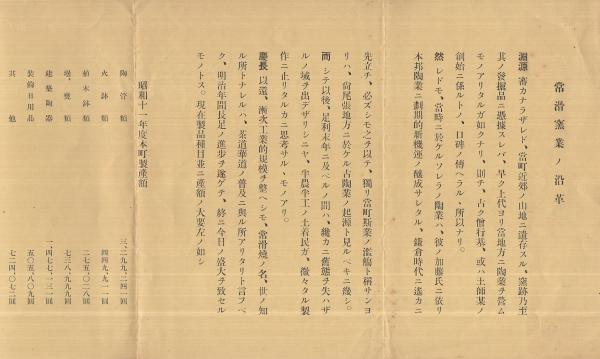 常滑窯業ノ沿革
淵源 審カナラザレド、當町近郊ノ山地ニ遺存スル、窯跡乃至
其ノ發掘品ニ憑據スレバ、早ク上代ヨリ當地方ニ陶業ヲ營ム
モノアリタルガ如クナリ、則チ、古ク僧行基、或ハ土師某ノ
創始ニ係ルトノ、口碑ノ傳ヘラル、所以ナリ。
然レドモ、當時ニ於ケルソレラノ陶業ハ、彼ノ加藤氏ニ依リ
本邦陶業ニ劃期的新機運ノ釀成サレタル、鎌倉時代ニ遙カニ
先立チ、必ズシモ之ヲ以テ、獨リ當町斯業ノ濫觴ト稱サンヨ
リハ、尙尾張地方ニ於ケル古陶業ノ起源ト見ルベキニ幾シ。
而シテ以後、足利末年ニ及ベルノ間ハ、纔カニ舊態ヲ失ハザ
ルノ域ヲ出デザリシニヤ、半農半工ノ土着民ガ、微々タル製
作ニ止リタルカニ思考サル、モノアリ。
慶長 以還、漸次工業的規模ヲ整ヘシモ、常滑燒ノ名、世ノ知
ル所トナレルハ、茶道華道ノ普及ニ與ル所アリタリト言フベ
ク、明治年間長足ノ進步ヲ遂ゲテ、終ニ今日ノ盛大ヲ致セル
モノトス。現在製品種目並ニ產額ノ大要左ノ如シ
昭和十一年度本町製產額
陶管類 三、二九九、二四一圓
火鉢類 四四九、九一一圓
植木鉢類 二七五、〇二八圓
甕、甕類 七三八、九九九圓
建築陶器 一、四七七、一三一圓
裝飾日用品 五〇五、八〇九圓
其他 七二四、〇七二圓